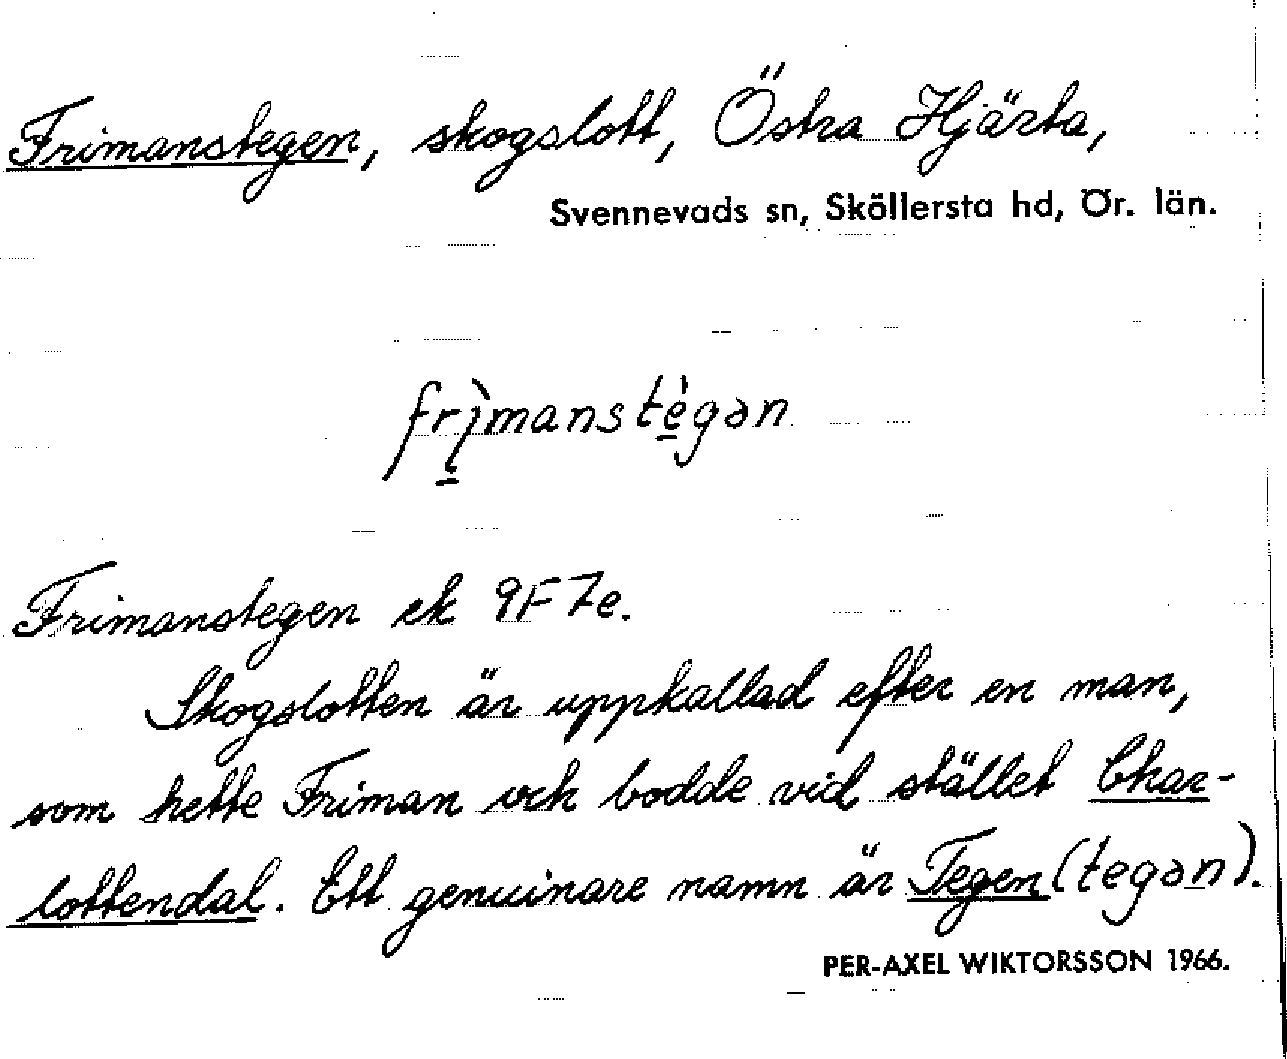 Frimanstegen, skogslott, Östra Hjärta,
Svennevads sn, Sköllersta hd, Ör. län.
frìmanstègən
Frimanstegen ek 9F7e.
Skogslotten är uppkallad efter en man,
som hette Friman och bodde vid stället Char-
lottendal. Ett genuinare namn är Tegen (tegən).
PER-AXEL WIKTORSSON 1966.